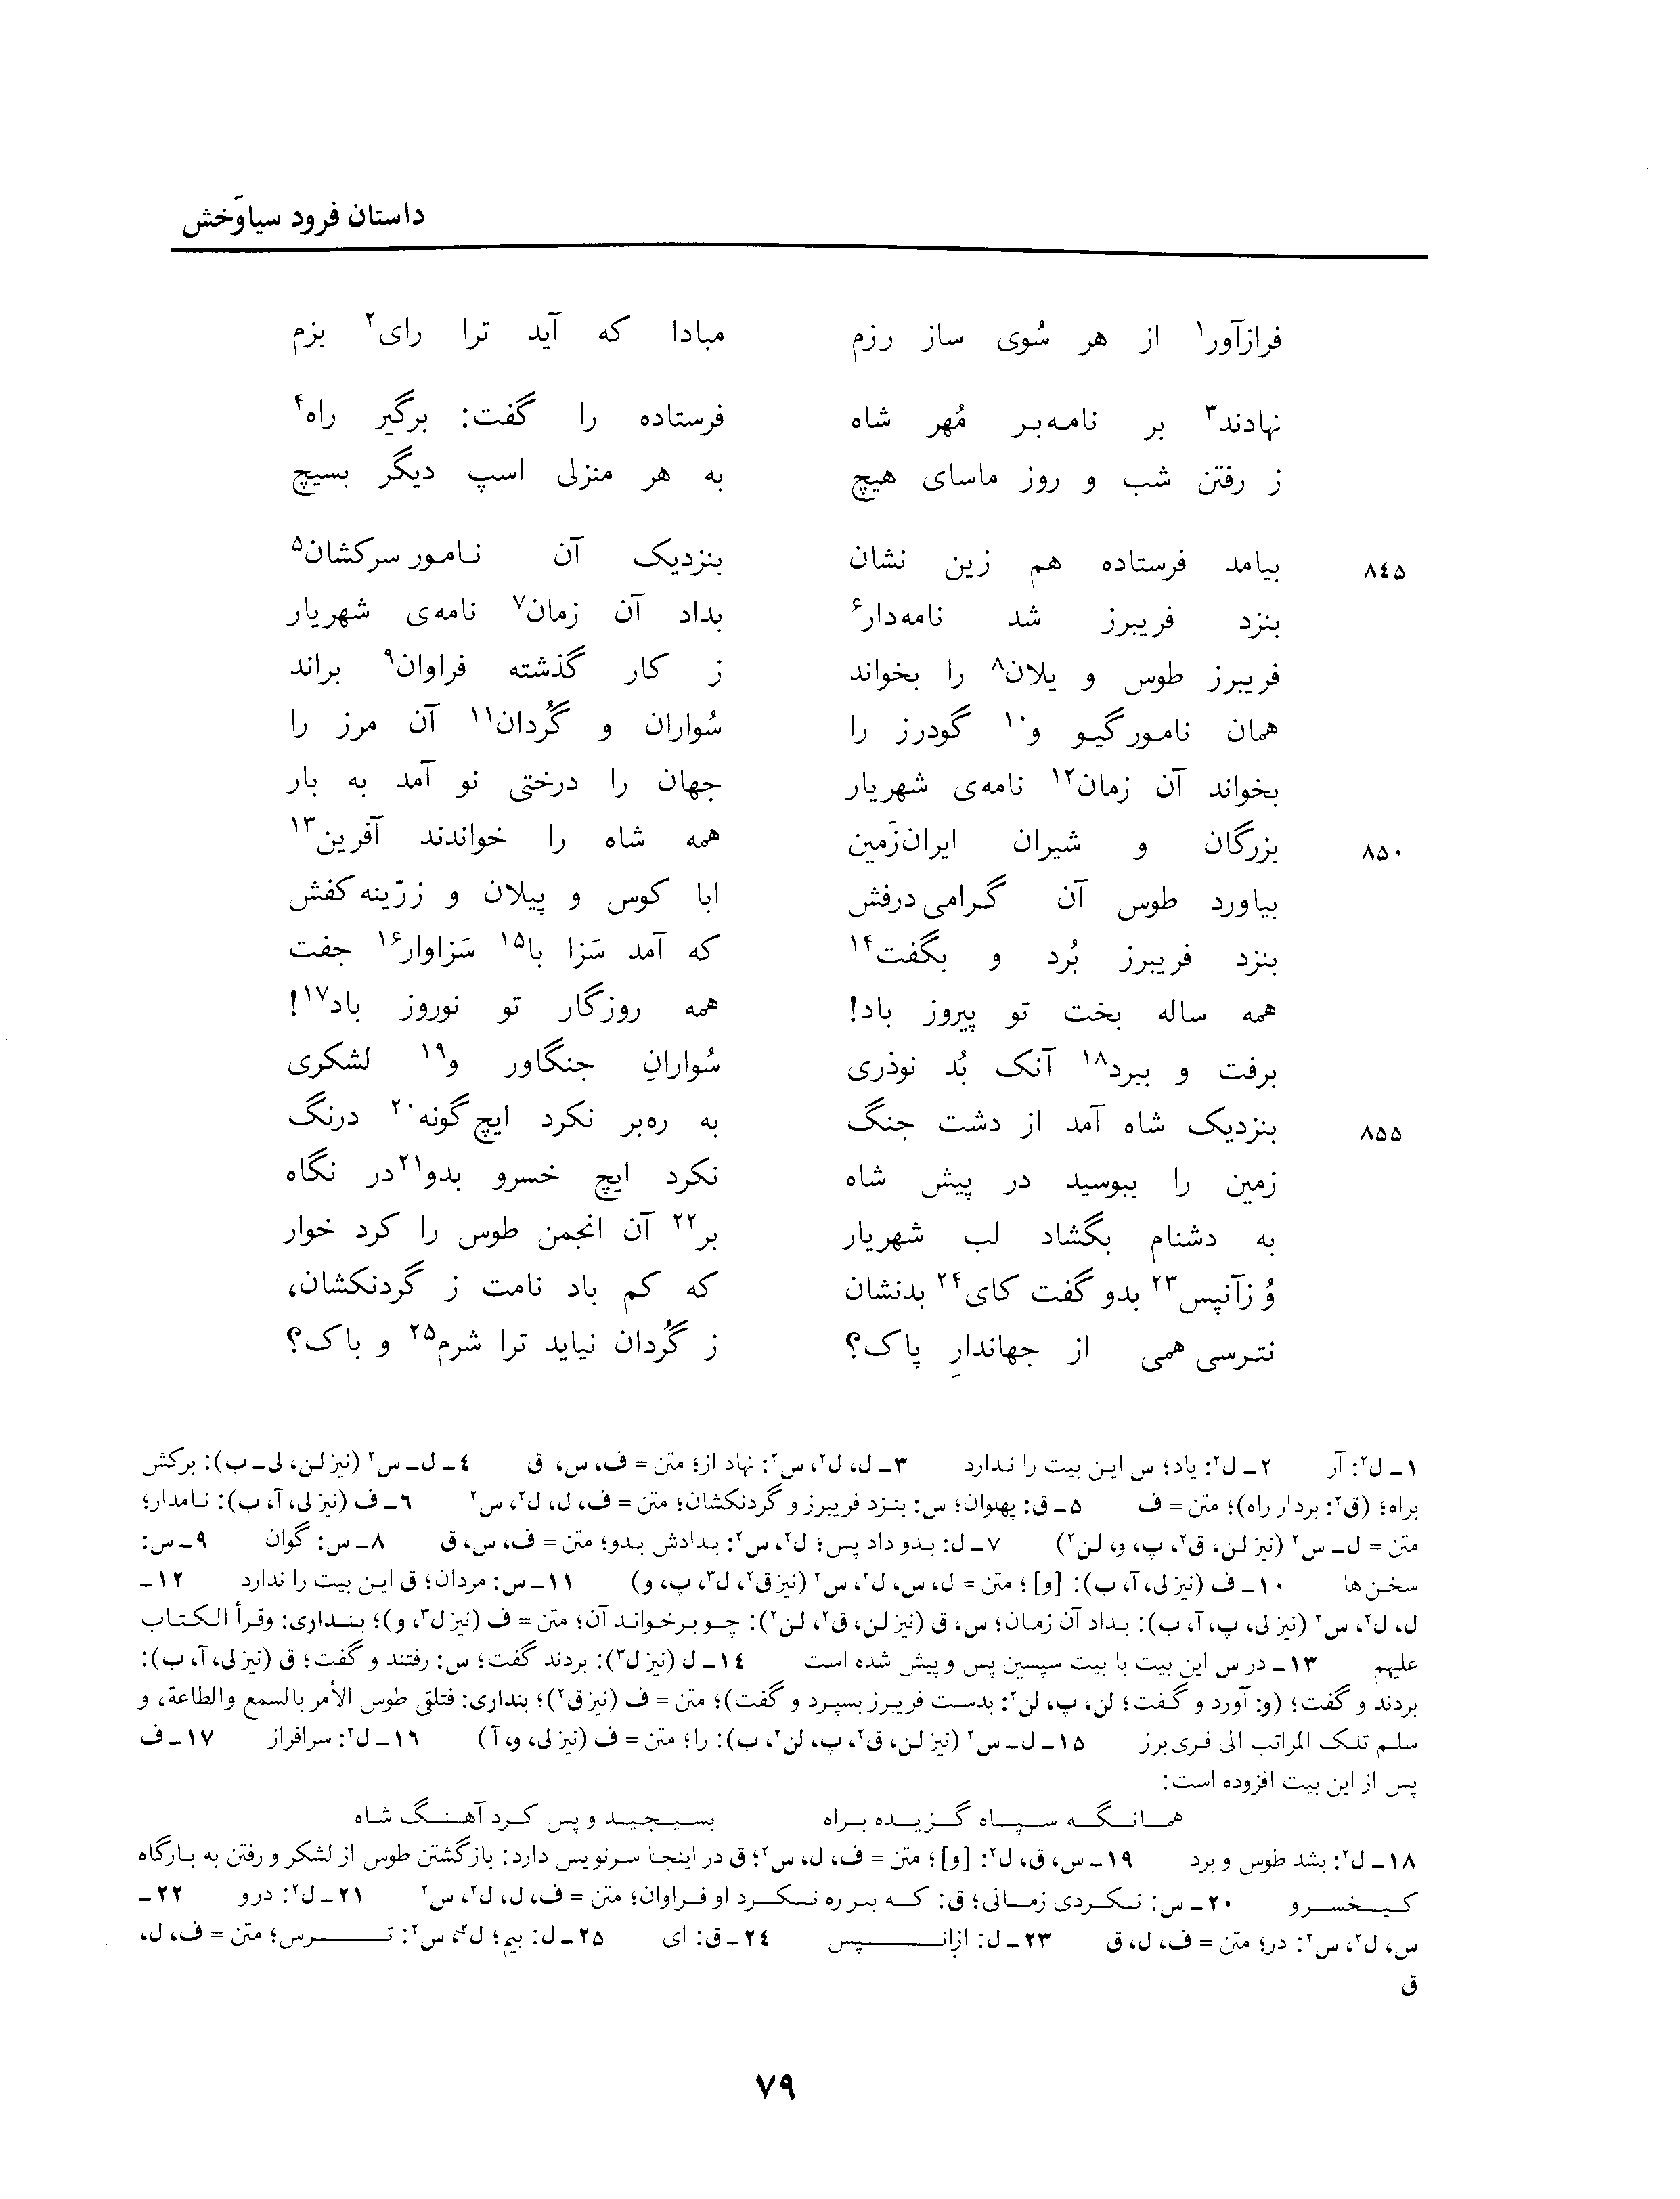 داستان فرود سیاوَخش
فرازآور۱ از هر سُوی ساز رزم مبادا که آید ترا رای۲ بزم
نهادند۳ بر نامه‌بر مُهر شاه فرستاده را گفت: برگیر راه۴
ز رفتن شب و روز ماسای هیچ به هر منزلی اسپ دیگر بسیچ
۸۴۵ بیامد فرستاده هم زین نشان بنزدیک آن نامور سرکشان۵
بنزد فریبرز شد نامه‌دار۶ بداد آن زمان۷ نامه‌ی شهریار
فریبرز طوس و یلان۸ را بخواند ز کار گذشته فراوان۹ براند
همان نامور گیو و۱۰ گودرز را سُواران و گُردان۱۱ آن مرز را
بخواند آن زمان۱۲ نامه‌ی شهریار جهان را درختی نو آمد به بار
۸۵۰ بزرگان و شیران ایران‌زَمین همه شاه را خواندند آفرین۱۳
بیاورد طوس آن گرامی درفش ابا کوس و پیلان و زرّینه کفش
بنزد فریبرز بُرد و بگفت۱۴ که آمد سَزا با۱۵ سَزاوار۱۶ جفت
همه ساله بخت تو پیروز باد! همه روزگار تو نوروز باد۱۷!
برفت و ببرد۱۸ آنک بُد نوذری سُوارانِ جنگاور و۱۹ لشکری
۸۵۵ بنزدیک شاه آمد از دشت جنگ به ره‌بر نکرد ایچ گونه۲۰ درنگ
زمین را ببوسید در پیش شاه نکرد ایچ خسرو بدو۲۱در نگاه
به دشنام بگشاد لب شهریار بر۲۲ آن انجمن طوس را کرد خوار
وُ زآنپس۲۳ بدو گفت کای۲۴ بدنشان که کم باد نامت ز گردنکشان،
نترسی همی از جهاندارِ پاک؟ ز گُردان نیاید ترا شرم۲۵ و باک؟
۱ـ ل۲: آر ۲ـ ل۲: یاد؛ س این بیت را ندارد ۳ـ ل، ل۲، س۲: نهاد از؛ متن = ف، س، ق ۴ـ ل ـ س۲ (نیز لن، لی ـ ب): برکش
براه؛ (ق۲: بردار راه)؛ متن = ف ۵ـ ق: پهلوان؛ س: بنزد فریبرز و گردنکشان؛ متن = ف، ل، ل۲، س۲ ۶ـ ف (نیز لی، آ، ب): نامدار؛
متن = ل ـ س۲ (نیز لن، ق۲، پ، و، لن۲) ۷ـ ل: بدو داد پس؛ ل۲، س۲: بدادش بدو؛ متن = ف، س، ق ۸ـ س: گوان ۹ـ س:
سخن‌ها ۱۰ـ ف (نیز لی، آ، ب): [و]؛ متن = ل، س، ل۲، س۲ (نیز ق۲، ل۳، پ، و) ۱۱ـ س: مردان؛ ق این بیت را ندارد ۱۲ـ
ل، ل۲، س۲ (نیز لی، پ، آ، ب): بداد آن زمان؛ س، ق (نیز لن، ق۲، لن۲): چو برخواند آن؛ متن = ف (نیز ل۳، و)؛ بنداری: وقرأ الکتاب
علیهم ۱۳ـ در س این بیت با بیت سپسین پس و پیش شده است ۱۴ـ ل (نیز ل۳): بردند گفت؛ س: رفتند و گفت؛ ق (نیز لی، آ، ب):
بردند و گفت؛ (و: آورد و گفت؛ لن، پ، لن۲: بدست فریبرز بسپرد و گفت)؛ متن = ف (نیز ق۲)؛ بنداری: فتلقی طوس الأمر بالسمع والطاعة، و
سلم تلک المراتب الی فری‌برز ۱۵ـ ل ـ س۲ (نیز لن، ق۲، پ، لن۲، ب): را؛ متن = ف (نیز لی، و، آ) ۱۶ـ ل۲: سرافراز ۱۷ـ ف
پس از این بیت افزوده است:
همانگه سپاه گزیده براه بسیجید و پس کرد آهنگ شاه
۱۸ـ ل۲: بشد طوس و برد ۱۹ـ س، ق، ل۲: [و]؛ متن = ف، ل، س۲؛ ق در اینجا سرنویس دارد: بازگشتن طوس از لشکر و رفتن به بارگاه
کیخسرو ۲۰ـ س: نکردی زمانی؛ ق: که بر ره نکرد او فراوان؛ متن = ف، ل، ل۲، س۲ ۲۱ـ ل۲: درو ۲۲ـ
س، ل۲، س۲: در؛ متن = ف، ل، ق ۲۳ـ ل: ازانپس ۲۴ـ ق: ای ۲۵ـ ل: بیم؛ ل۲، س۲: ترس؛ متن = ف، ل،
ق
۷۹